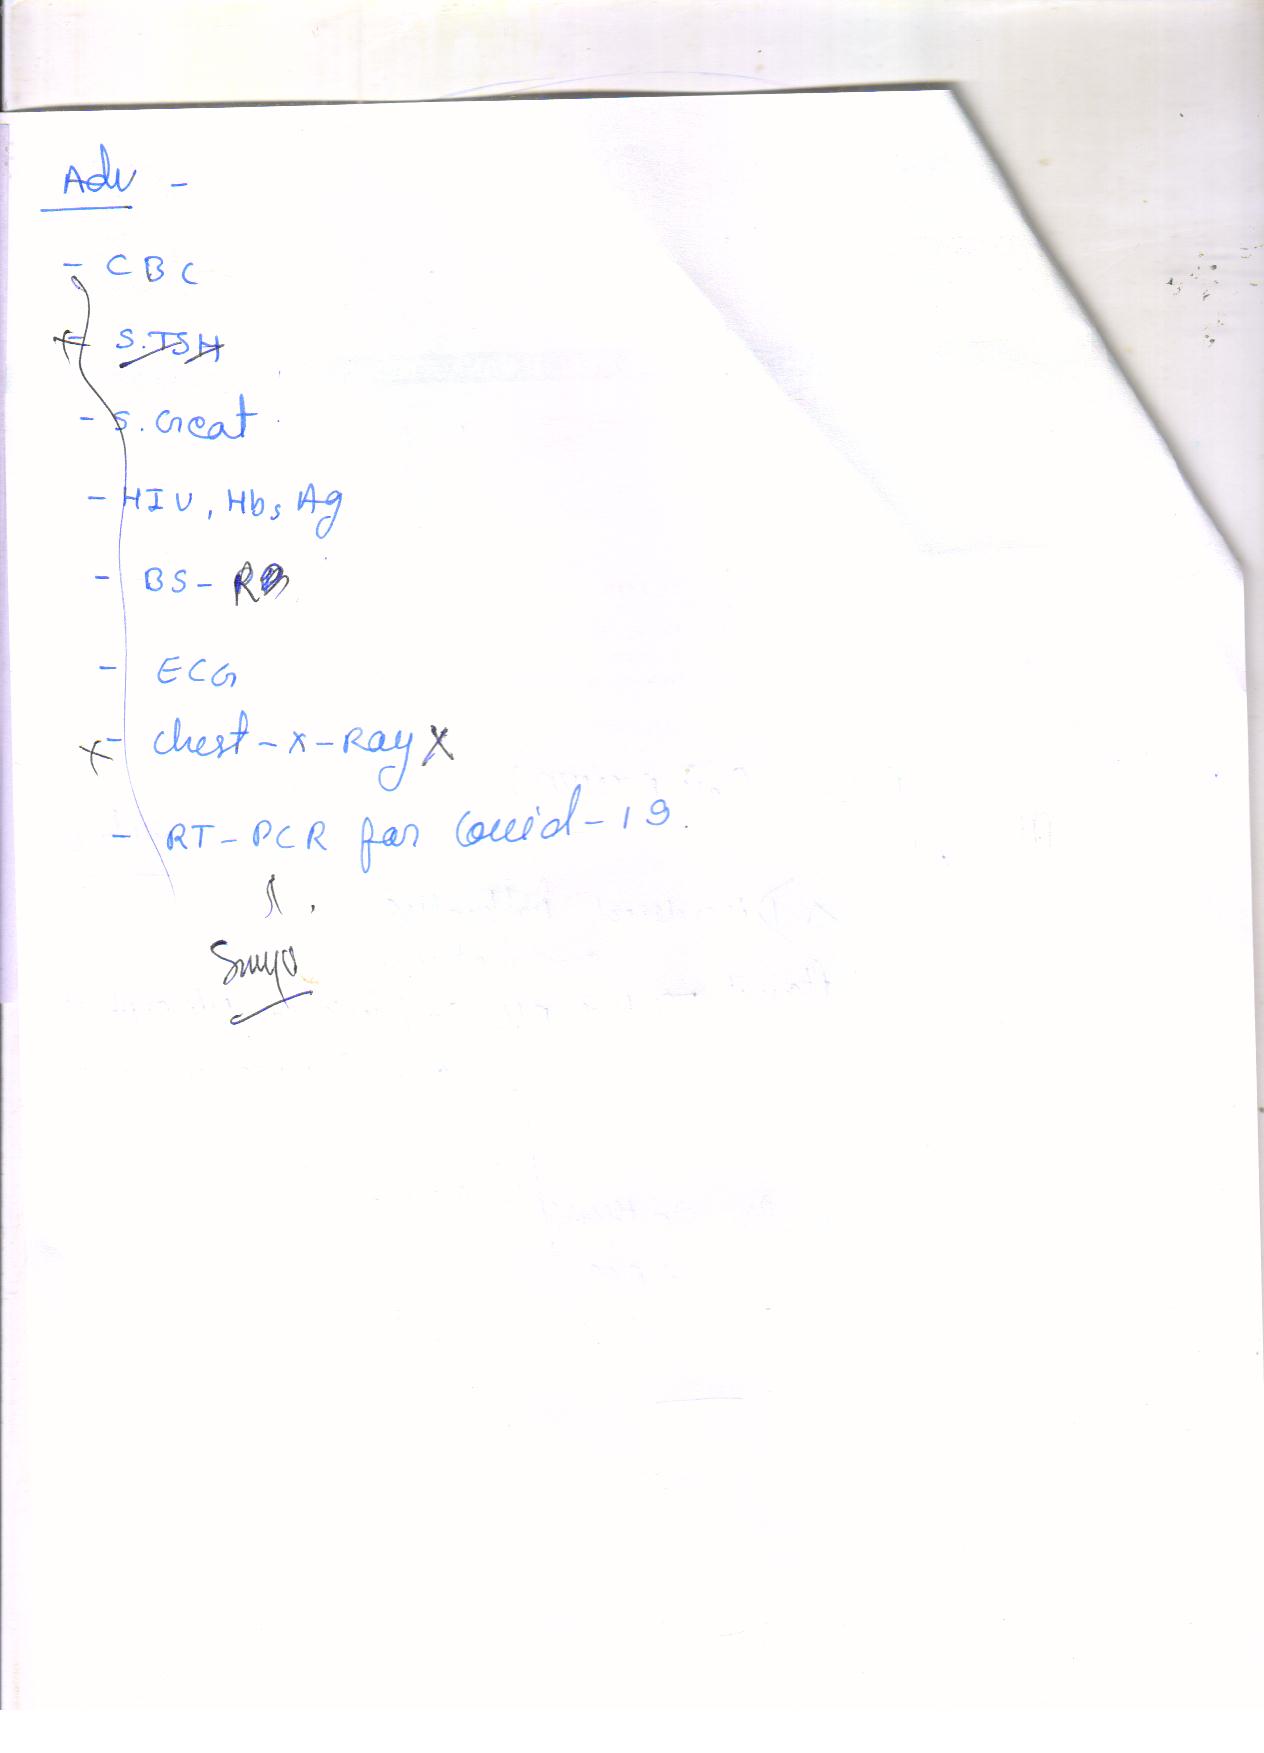 Adv -
- CBC
- S.TSH
- S. Creat
- HIV, HbsAg
- BS - R
- ECG
- Chest - X - Ray X
- RT - PCR for Covid - 19.